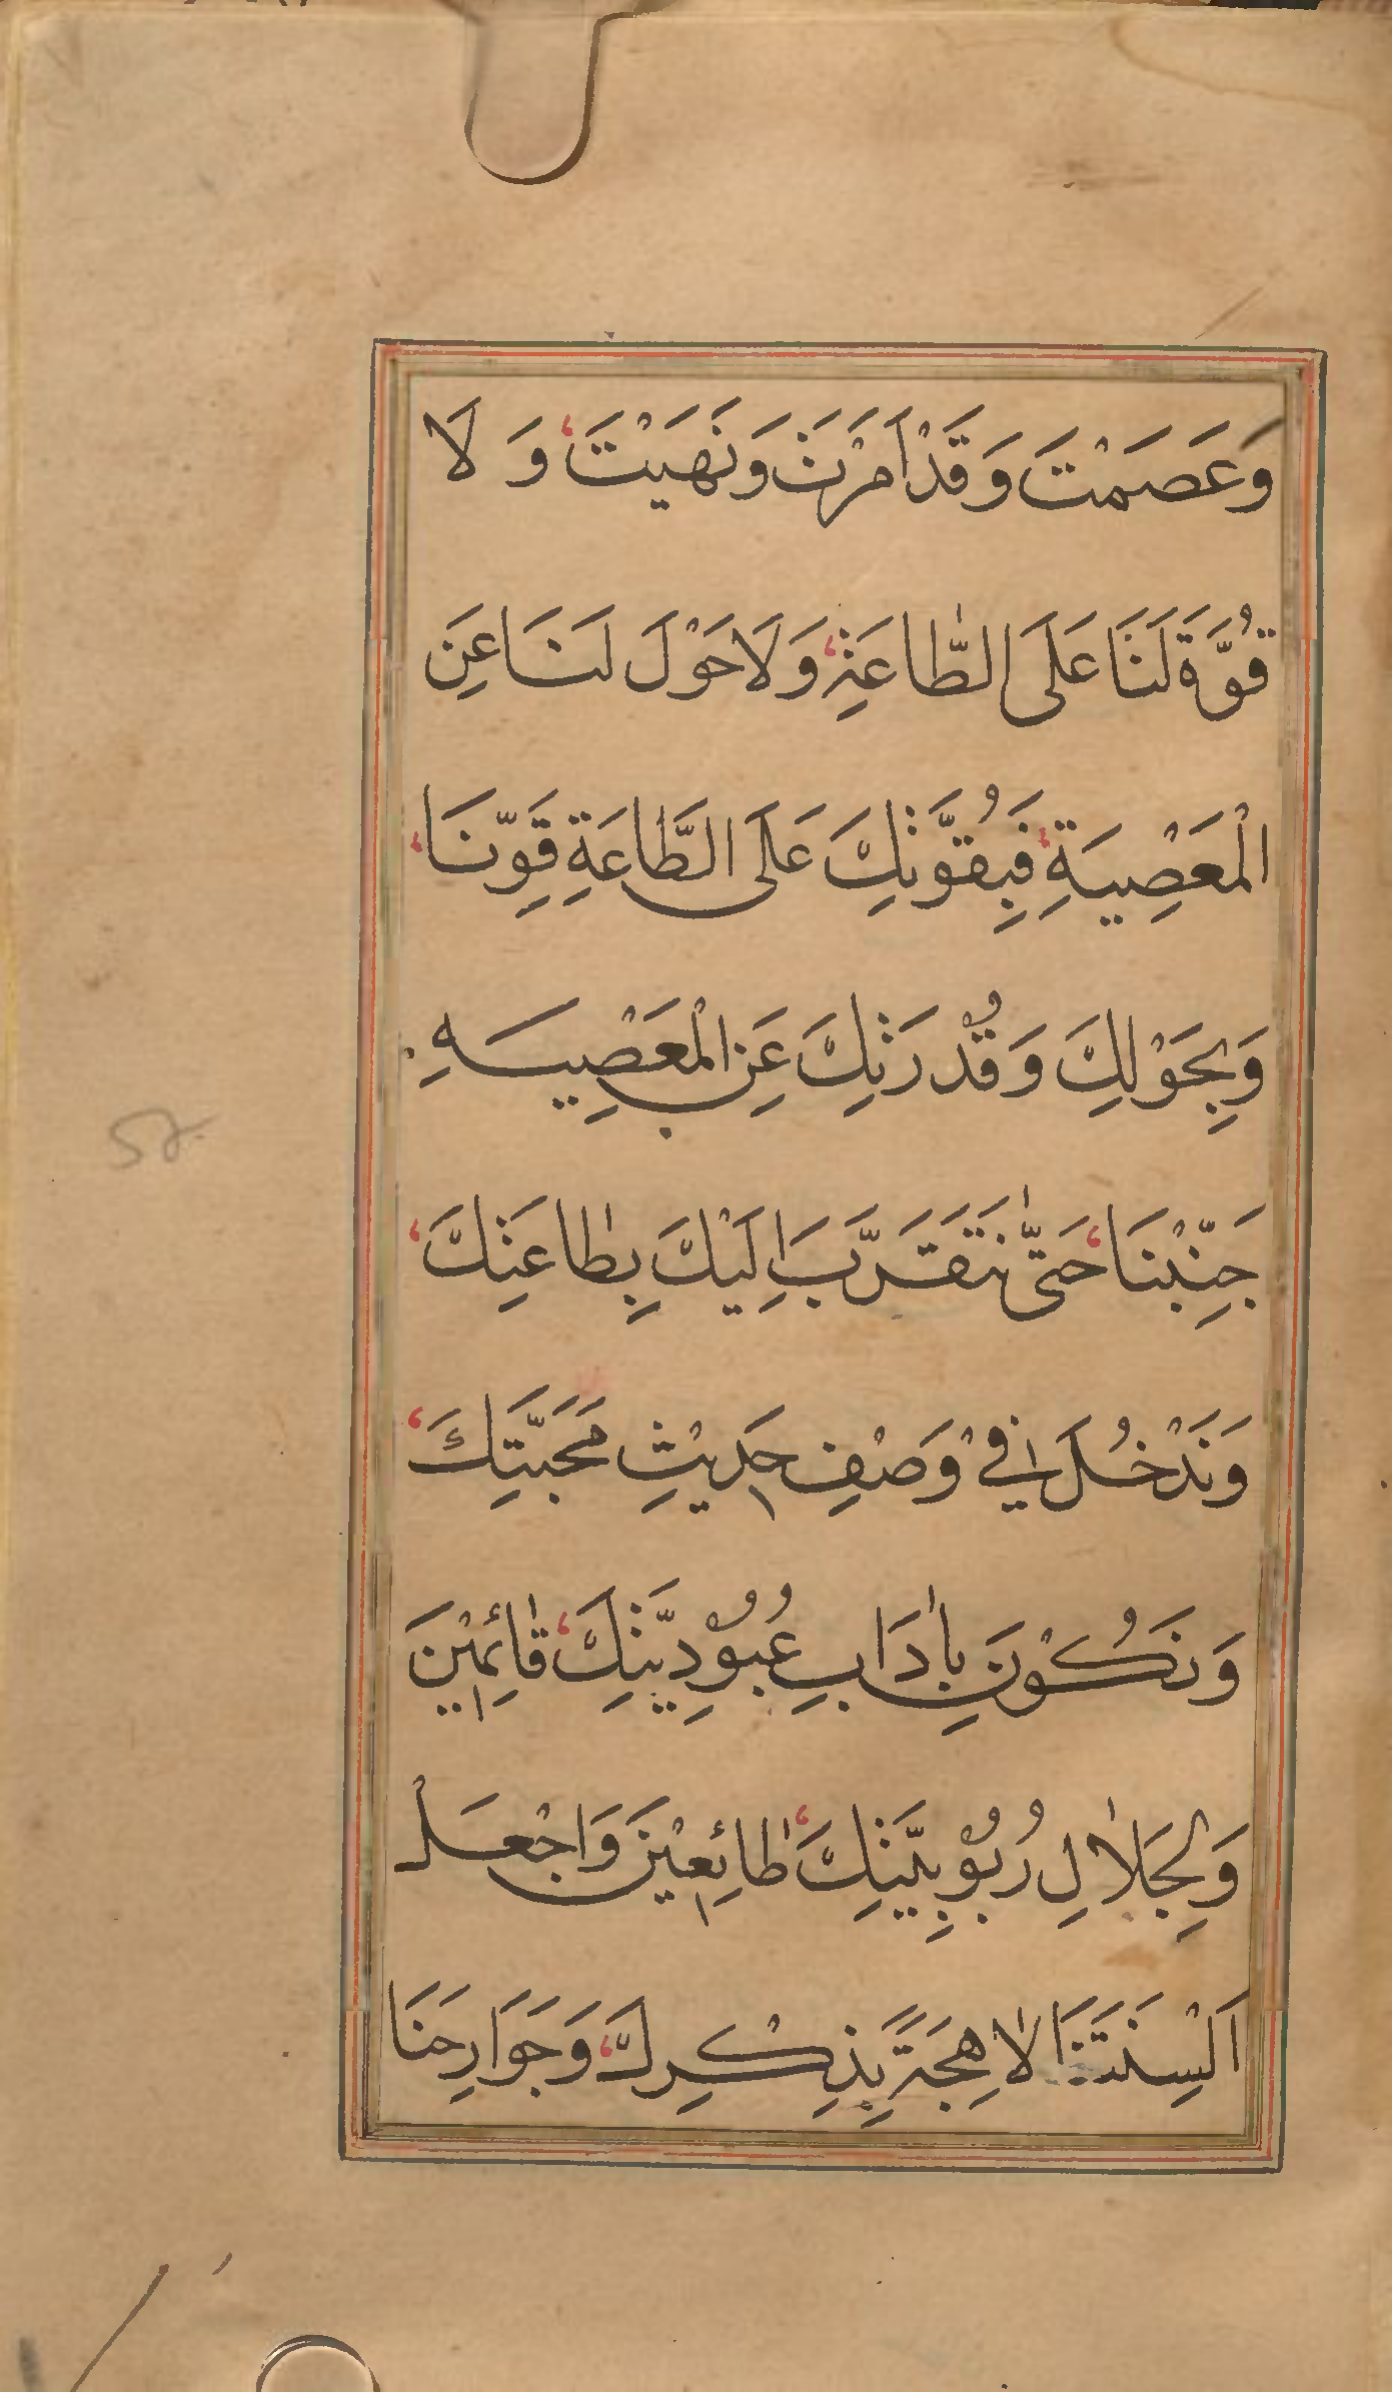 وَعَصَمْتَ وَقَدْ اَمَرْتَ وَنَهَيْتَ وَلَا
قُوَّةَ لَنَا عَلَى الطَّاعَةِ وَلَا حَوْلَ لَنَا عَنِ
الْمَعْصِيَةِ فَبِقُوَّتِكَ عَلَى الطَّاعَةِ قَوِّنَا
وَبِحَوْلِكَ وَقُدْرَتِكَ عَنِ الْمَعْصِيَةِ
جَنِّبْنَا حَتّٰى نَتَقَرَّبَ اِلَيْكَ بِطَاعَتِكَ
وَنَدْخُلَ فِيْ وَصْفِ حَدِيْثِ مَحَبَّتِكَ
وَنَكُوْنَ بِاٰدَابِ عُبُوْدِيَّتِكَ قَائِمِيْنَ
وَلِجَلَالِ رُبُوْبِيَّتِكَ طَائِعِيْنَ وَاجْعَلْ
اَلْسِنَتَنَا لَاهِجَةً بِذِكْرِكَ وَجَوَارِحَنَا
52